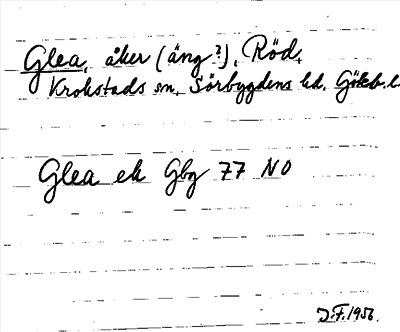 Glea, åker (äng?), Röd,
Krokstads sn, Sörbygdens hd, Göteb. l.
Glea ek Gbg 77 NO
J.F. 1956.